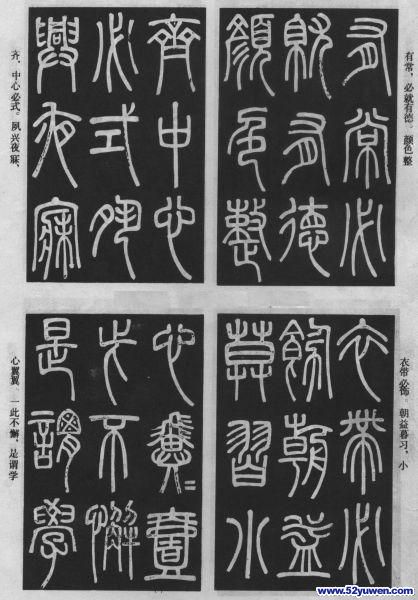 有常，必就有德。颜色整
有常必
就有德
顔色整
齊中心
必式夙
興夜寐
齐，中心必式。夙兴夜寐，
衣带必饰。朝益暮习，小
衣帶必
飭朝益
莫習小
心翼〓壹
此不懈
是謂學
心翼翼。一此不懈，是谓学
www.52yuwen.com